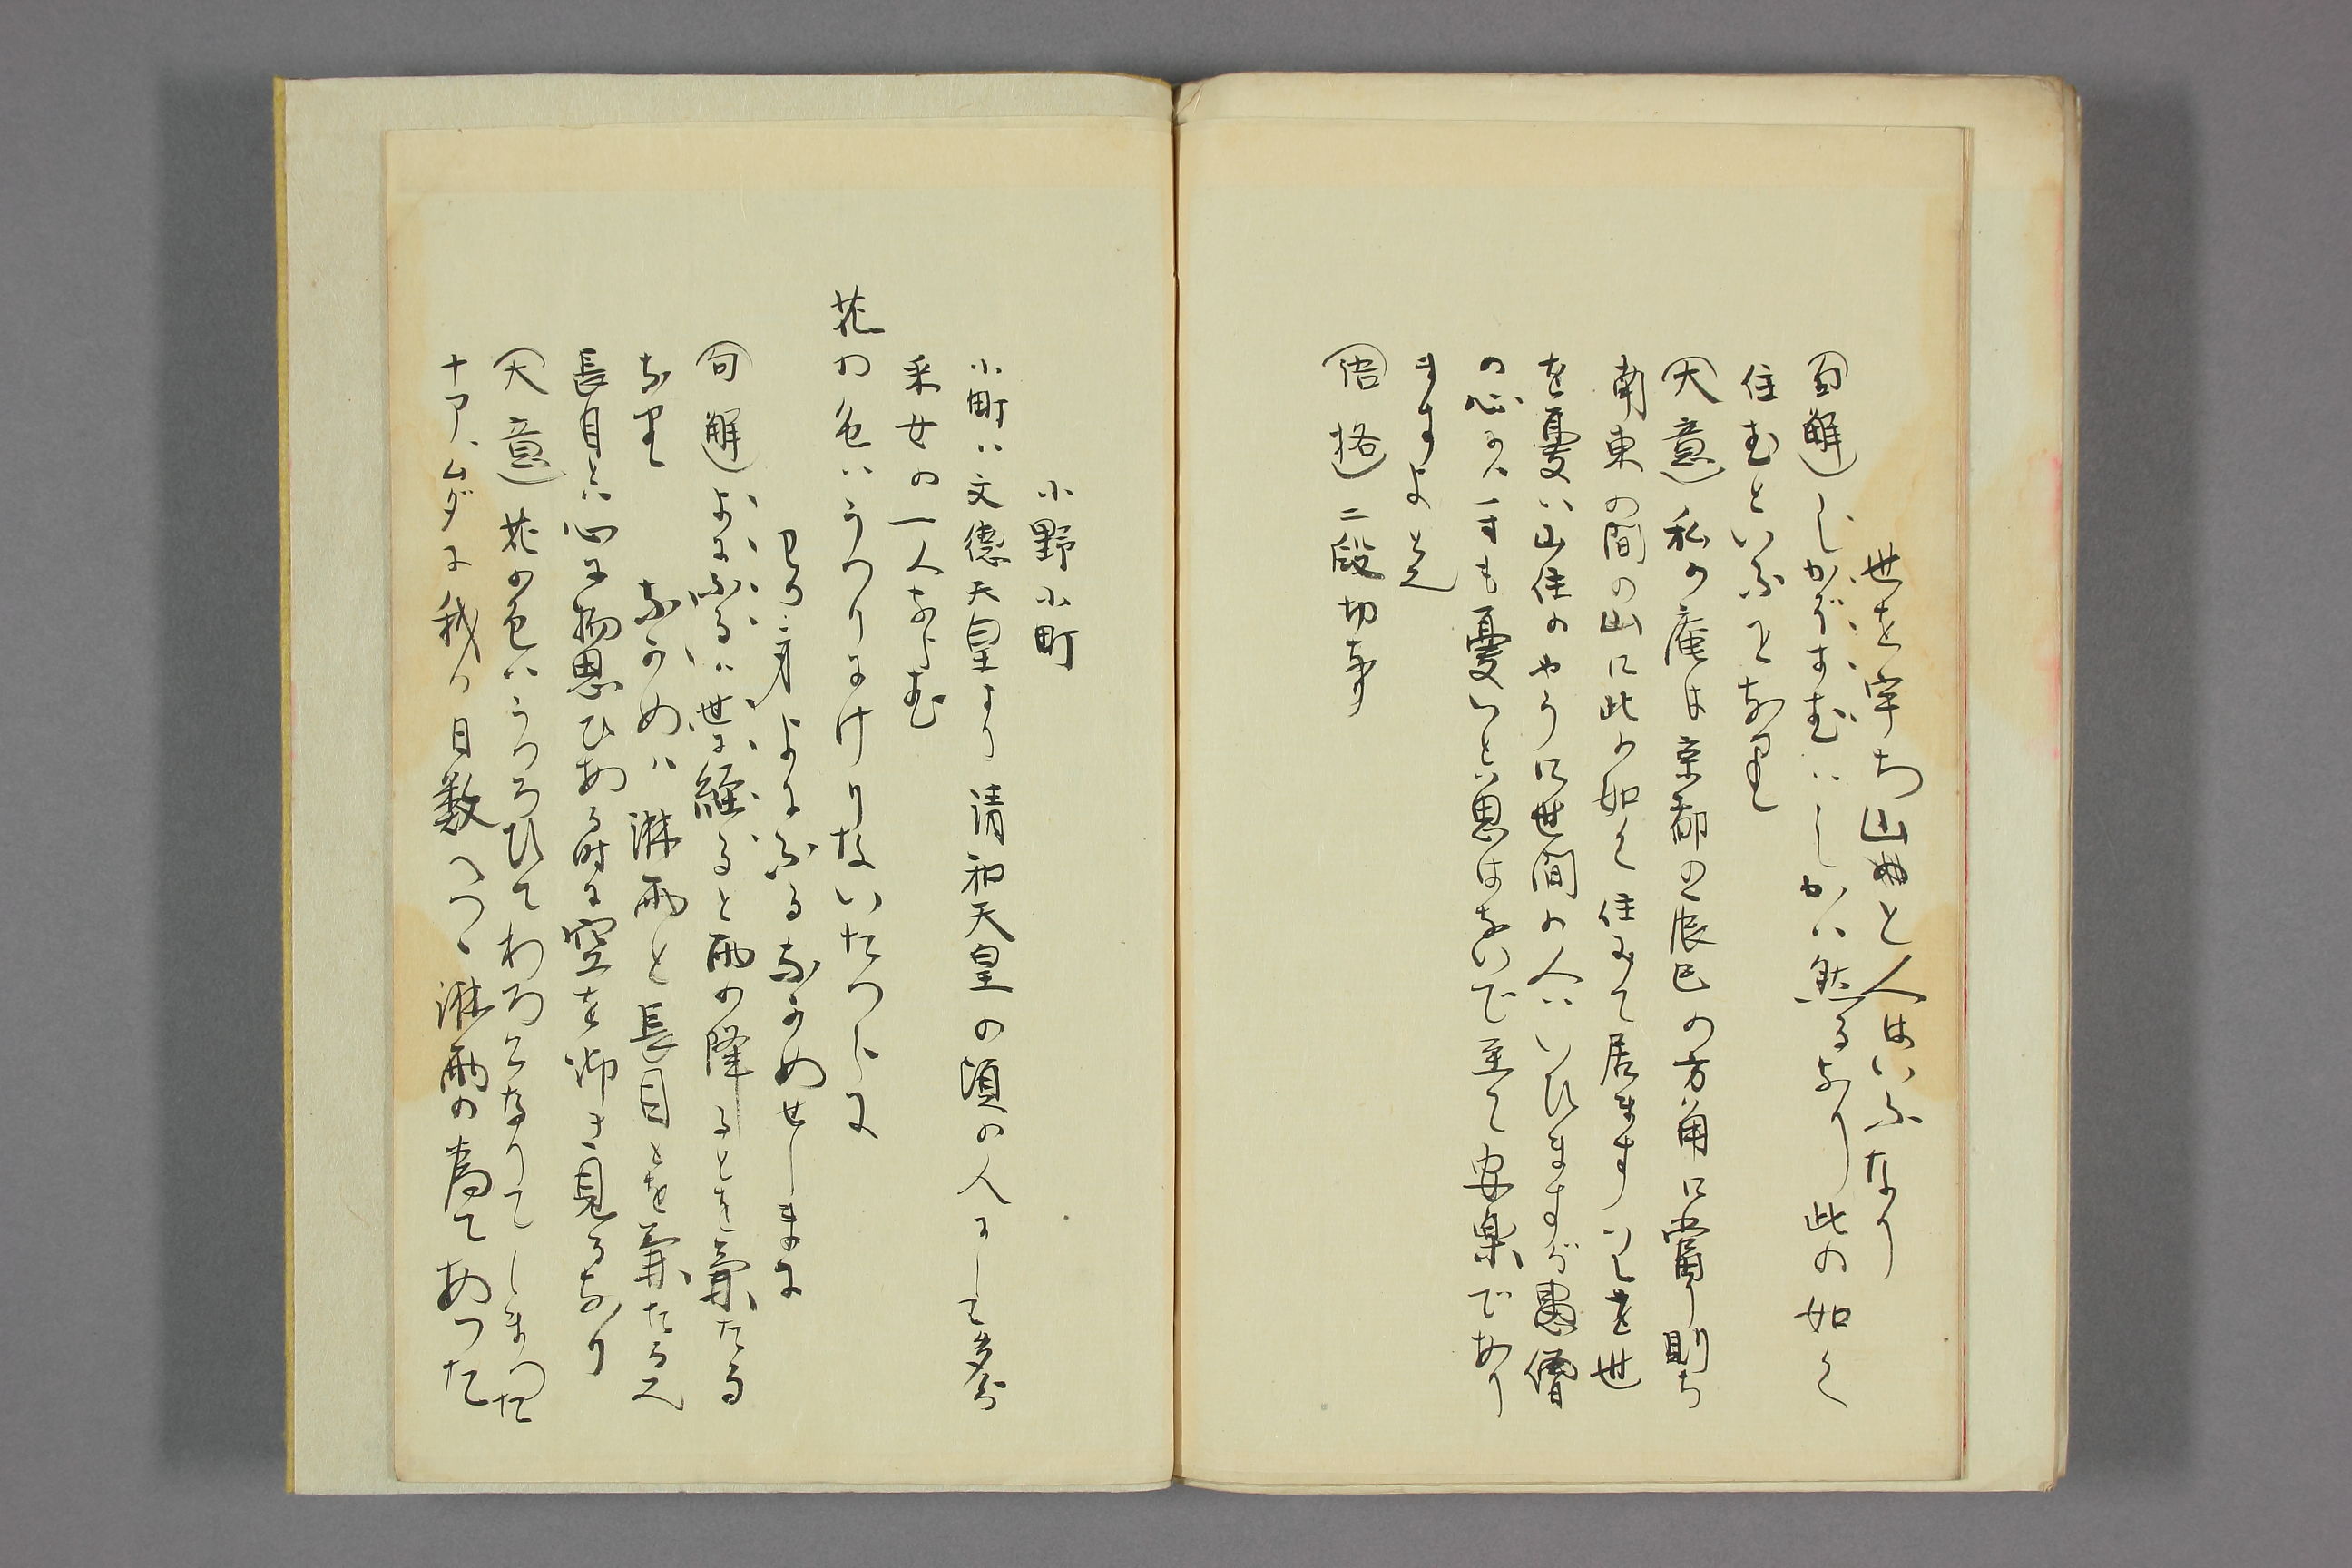 世を宇ち山と人はいふなり
句解 しかぞすむはしかハ然るなり此の如く
住むといふことなり
大意 私の庵は京都の辰巳の方角に當り則ち
南東の間の山に此の如く住みて居ます しを世
を憂い山住のやうに世間の人はいひますが愚僧
の心では一寸も憂いとは思はないで至て安楽であり
ますよと
語格 二段切なり
小野小町
小町は文徳天皇より清和天皇の頃の人にして多分
采女の一人ならむ
花の色はうつりにけりないたつらに
わか身よにふるなかめせしまに
句解 よにふるは世に経ると雨の降るとを兼たる
なり なかめは淋雨と長目とを兼たる也
長目とは心に物思ひある時に空を仰き見るなり
大意 花の色はうつろひてわろくなりてしまつた
十ア、ムダに我か日数へつゝ淋雨の為てあつた